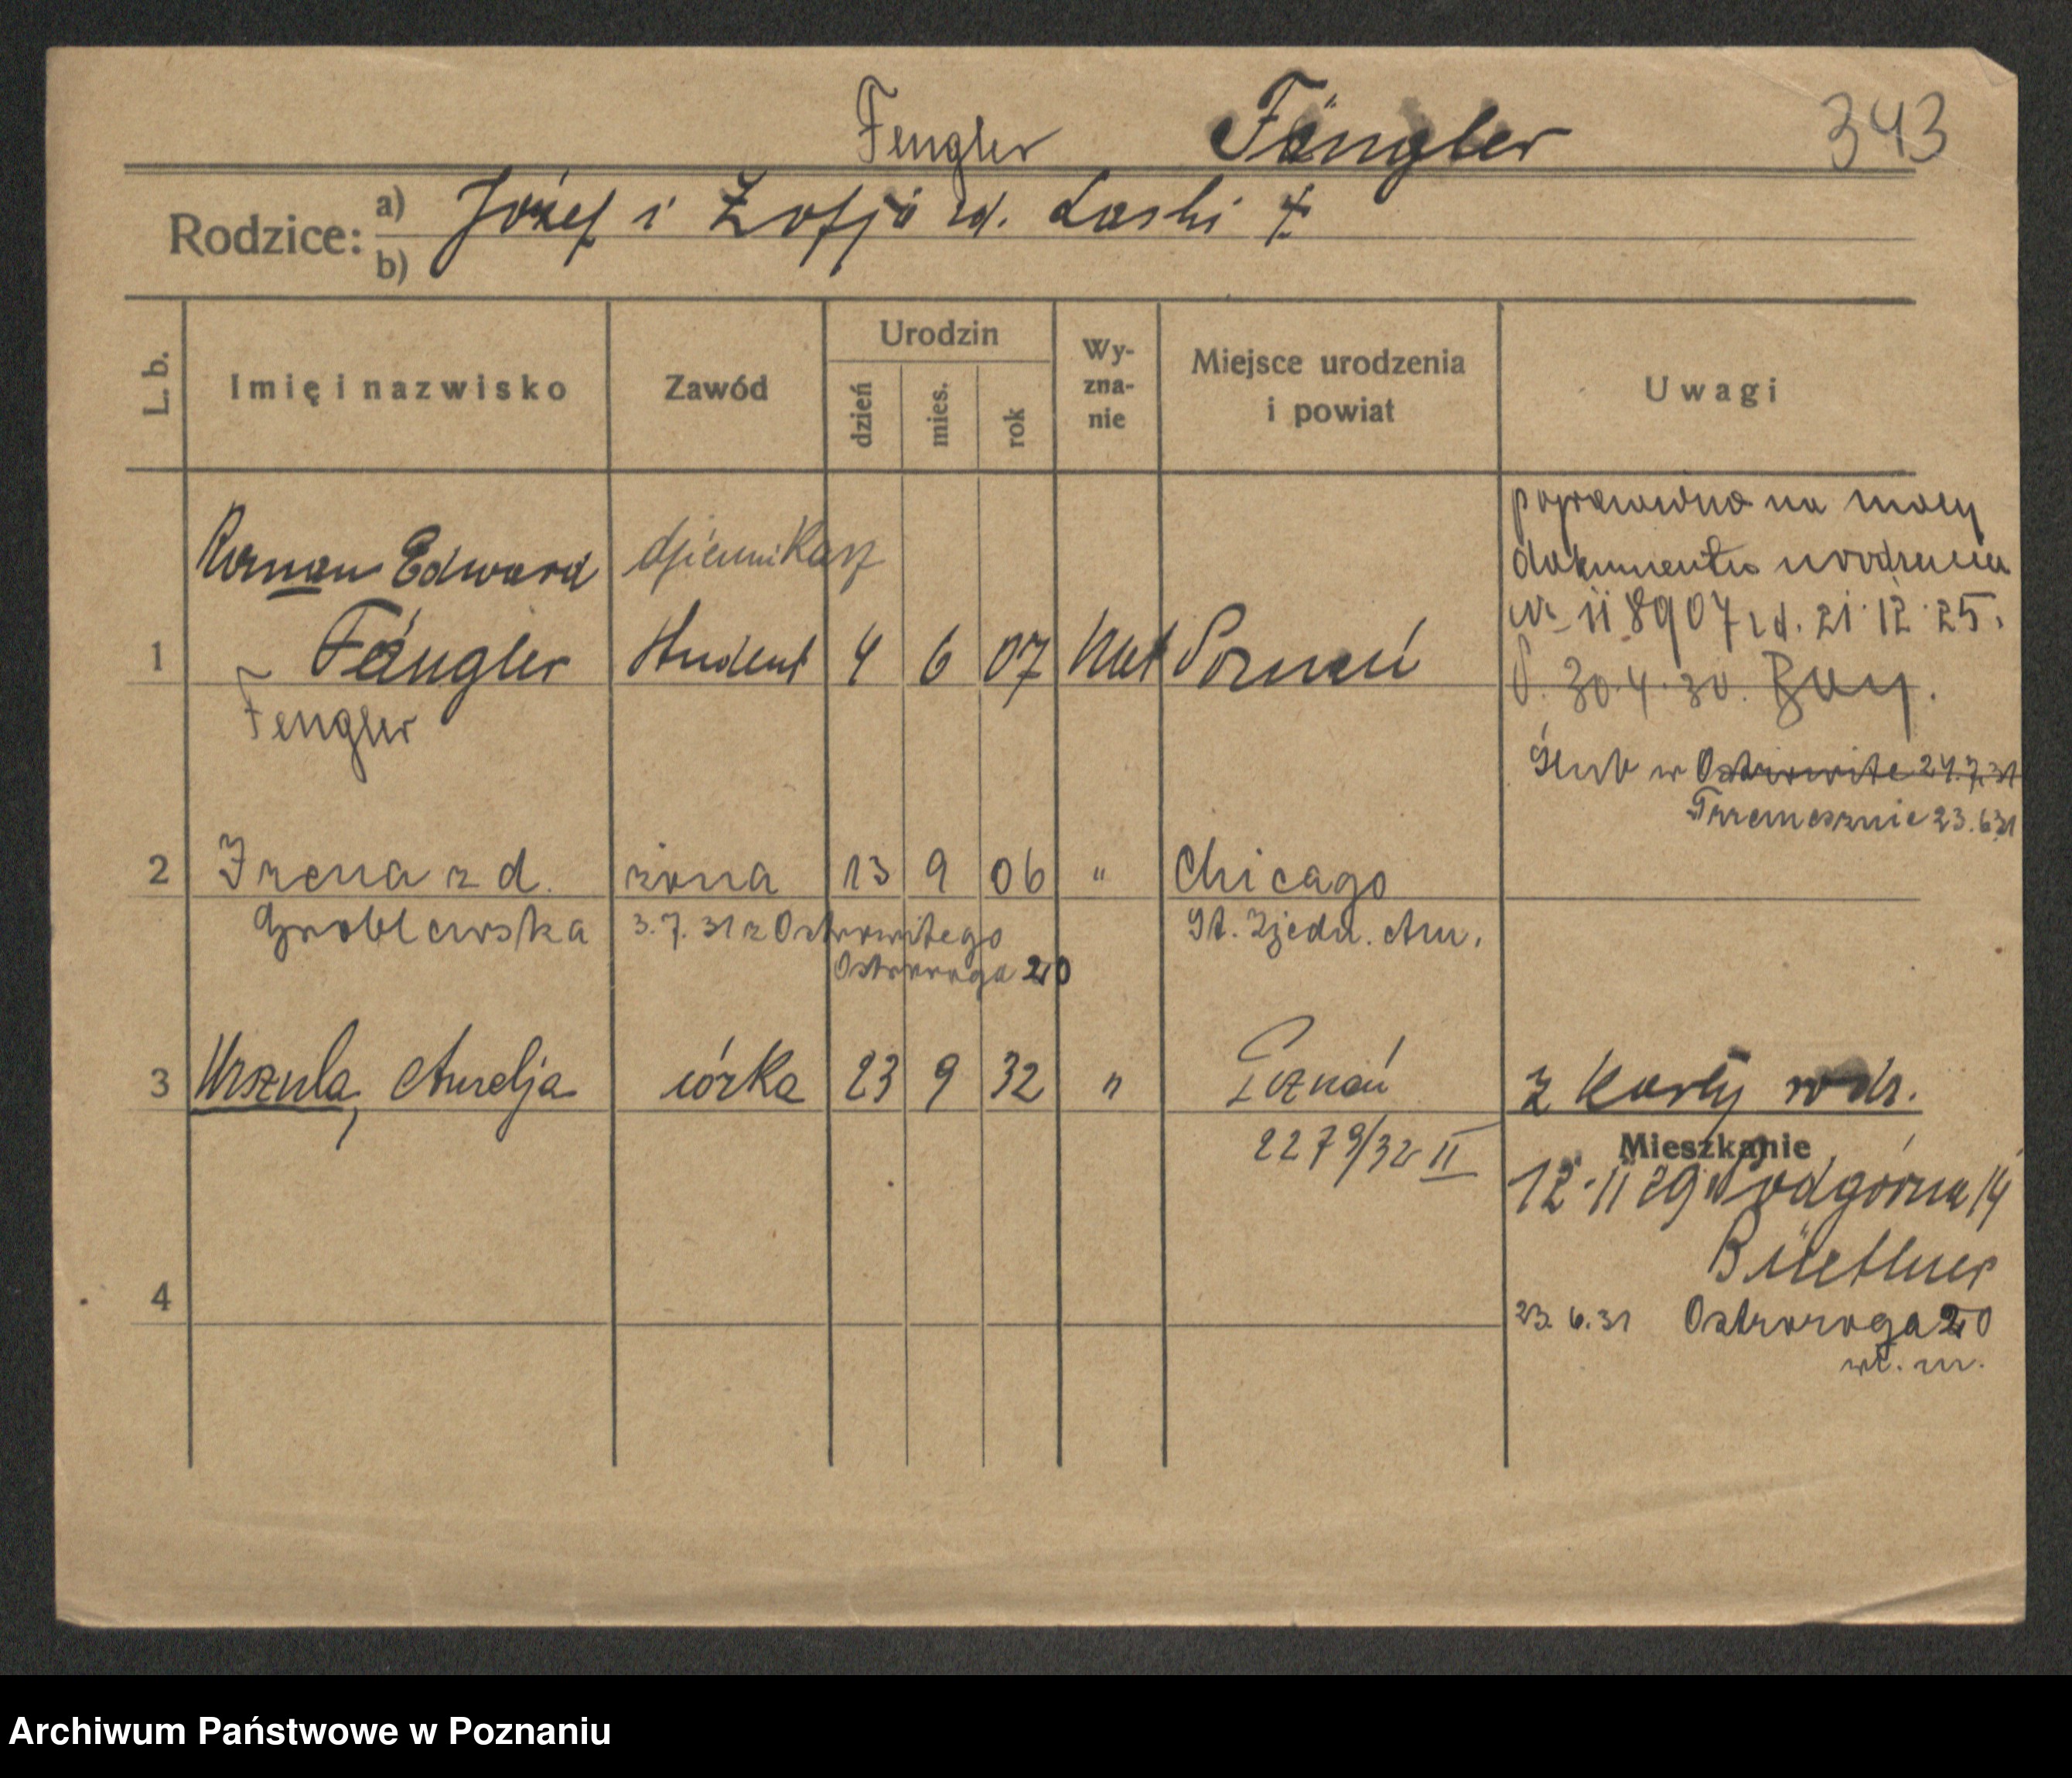 Fengler Fängler 343
Rodzice: a) Józef i Zofja zd. Laski
b)
L. b. Imię i nazwisko Zawód Urodzin dzień mies. rok Wy-zna-nie Miejsce urodzenia i powiat Uwagi
poprawiono na mocy
dokumentu urodzenia
nr 118907 z d. 21.12.25.
P. 30.4.30.
Roman Edward dziennikarz
1 Fängler student 4 6 07 kat Poznań
Fengler
Ślub w Ostrowite 24.7.31
Trzemesznie 23.6.31
2 Irena z d. żona 13 9 06 " Chicago
Groblewska 3.7.31 z Ostrowitego St. Zjedn. Am.
Ostroroga 20
3 Urszula, Aurelja córka 23 9 32 " Poznań z karty urodz.
2279/32 II
Mieszkanie
12.11 29 Podgórna 14
Büettner
4
23.6.31 Ostroroga 20
wł. m.
Archiwum Państwowe w Poznaniu